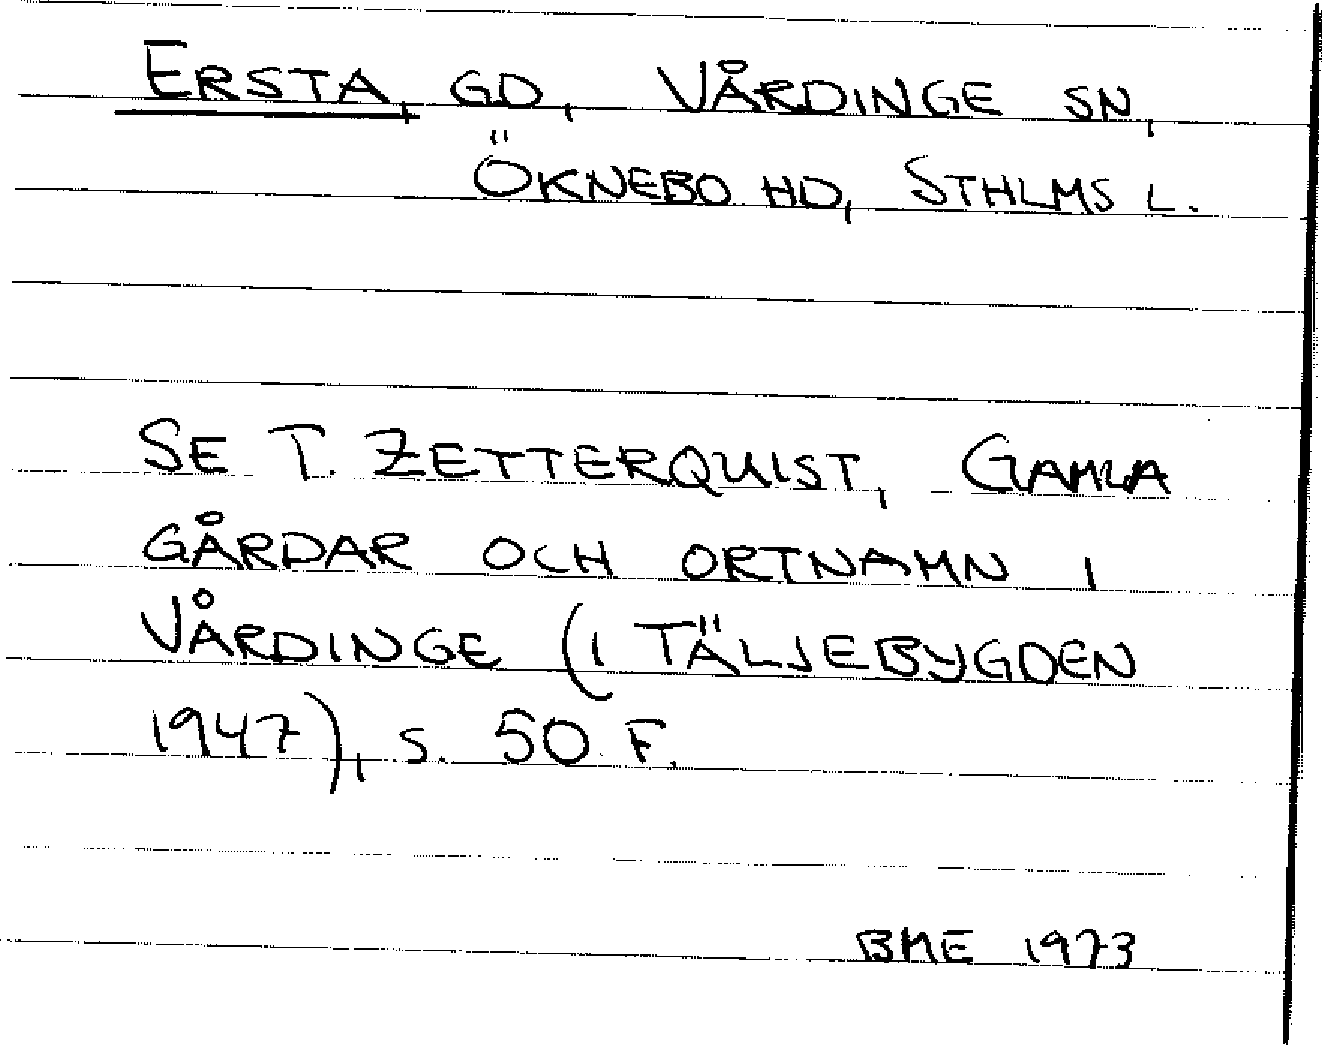 ERSTA, GD, VÅRDINGE SN,
ÖKNEBO HD, STHLMS L.
SE T. ZETTERQUIST, GAMLA
GÅRDAR OCH ORTNAMN I
VÅRDINGE (I TÄLJEBYGDEN
1947), S. 50 F.
BME 1973